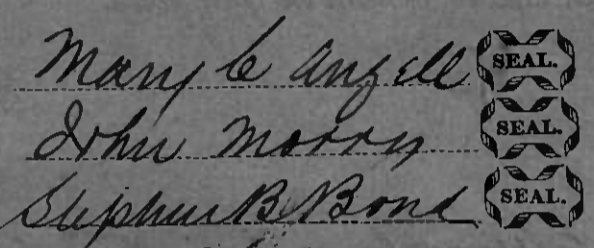 Mary C Angell SEAL.
John Morris SEAL.
Stephen B. Bond SEAL.